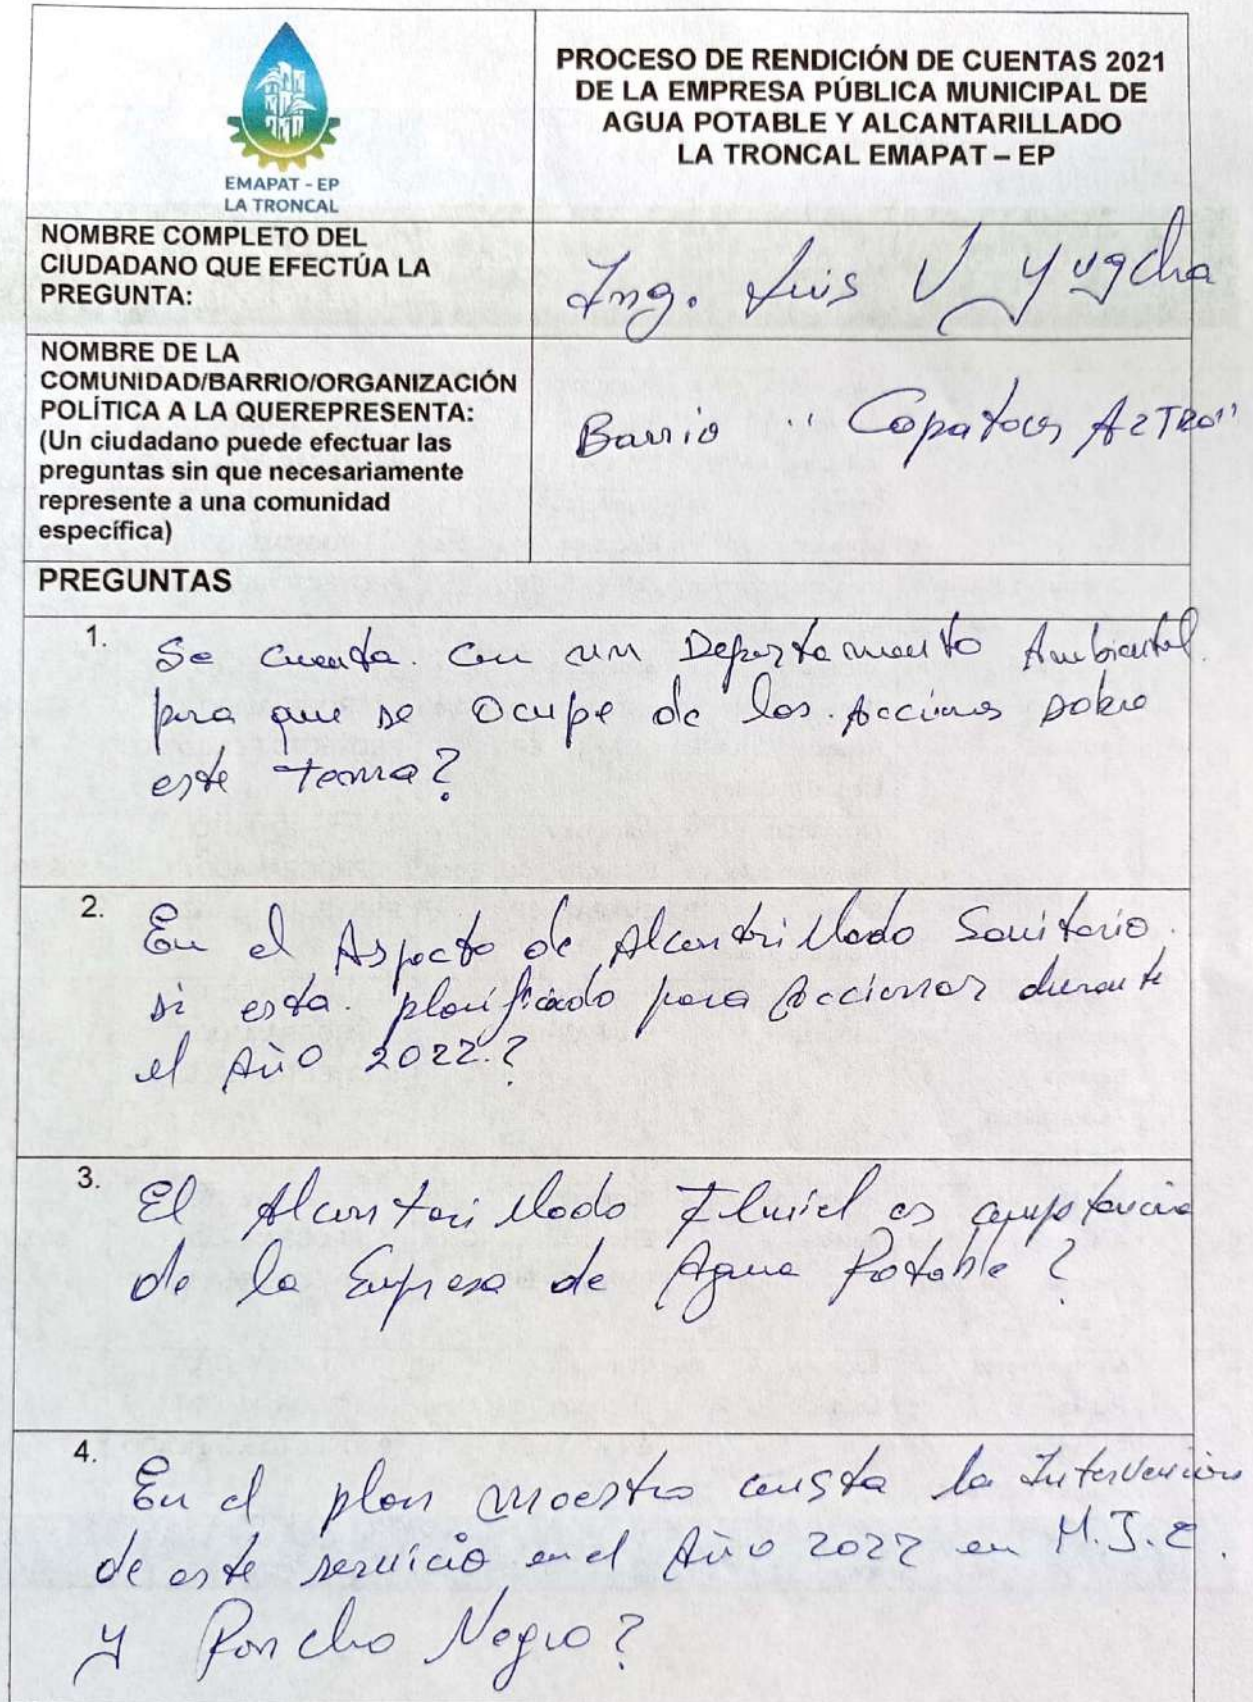 EMAPAT - EP
LA TRONCAL
PROCESO DE RENDICIÓN DE CUENTAS 2021
DE LA EMPRESA PÚBLICA MUNICIPAL DE
AGUA POTABLE Y ALCANTARILLADO
LA TRONCAL EMAPAT – EP
NOMBRE COMPLETO DEL
CIUDADANO QUE EFECTÚA LA
PREGUNTA:
Ing. Luis V. Yugcha
NOMBRE DE LA
COMUNIDAD/BARRIO/ORGANIZACIÓN
POLÍTICA A LA QUEREPRESENTA:
(Un ciudadano puede efectuar las
preguntas sin que necesariamente
represente a una comunidad
específica)
Barrio "
PREGUNTAS
1. Se cuenta. con un Departamento Ambiental.
para que se Ocupe de las Acciones sobre
este tema?
2. En el Aspecto de Alcantarillado Sanitario.
si esta. planificado para Accionar durante
el Año 2022.?
3. El Alcantarillado Fluvial es competencia
de la Empresa de Agua Potable?
4. En el plan maestro consta la Intervención
de este servicio en el Año 2022 en M.J.C.
y Poncho Negro?